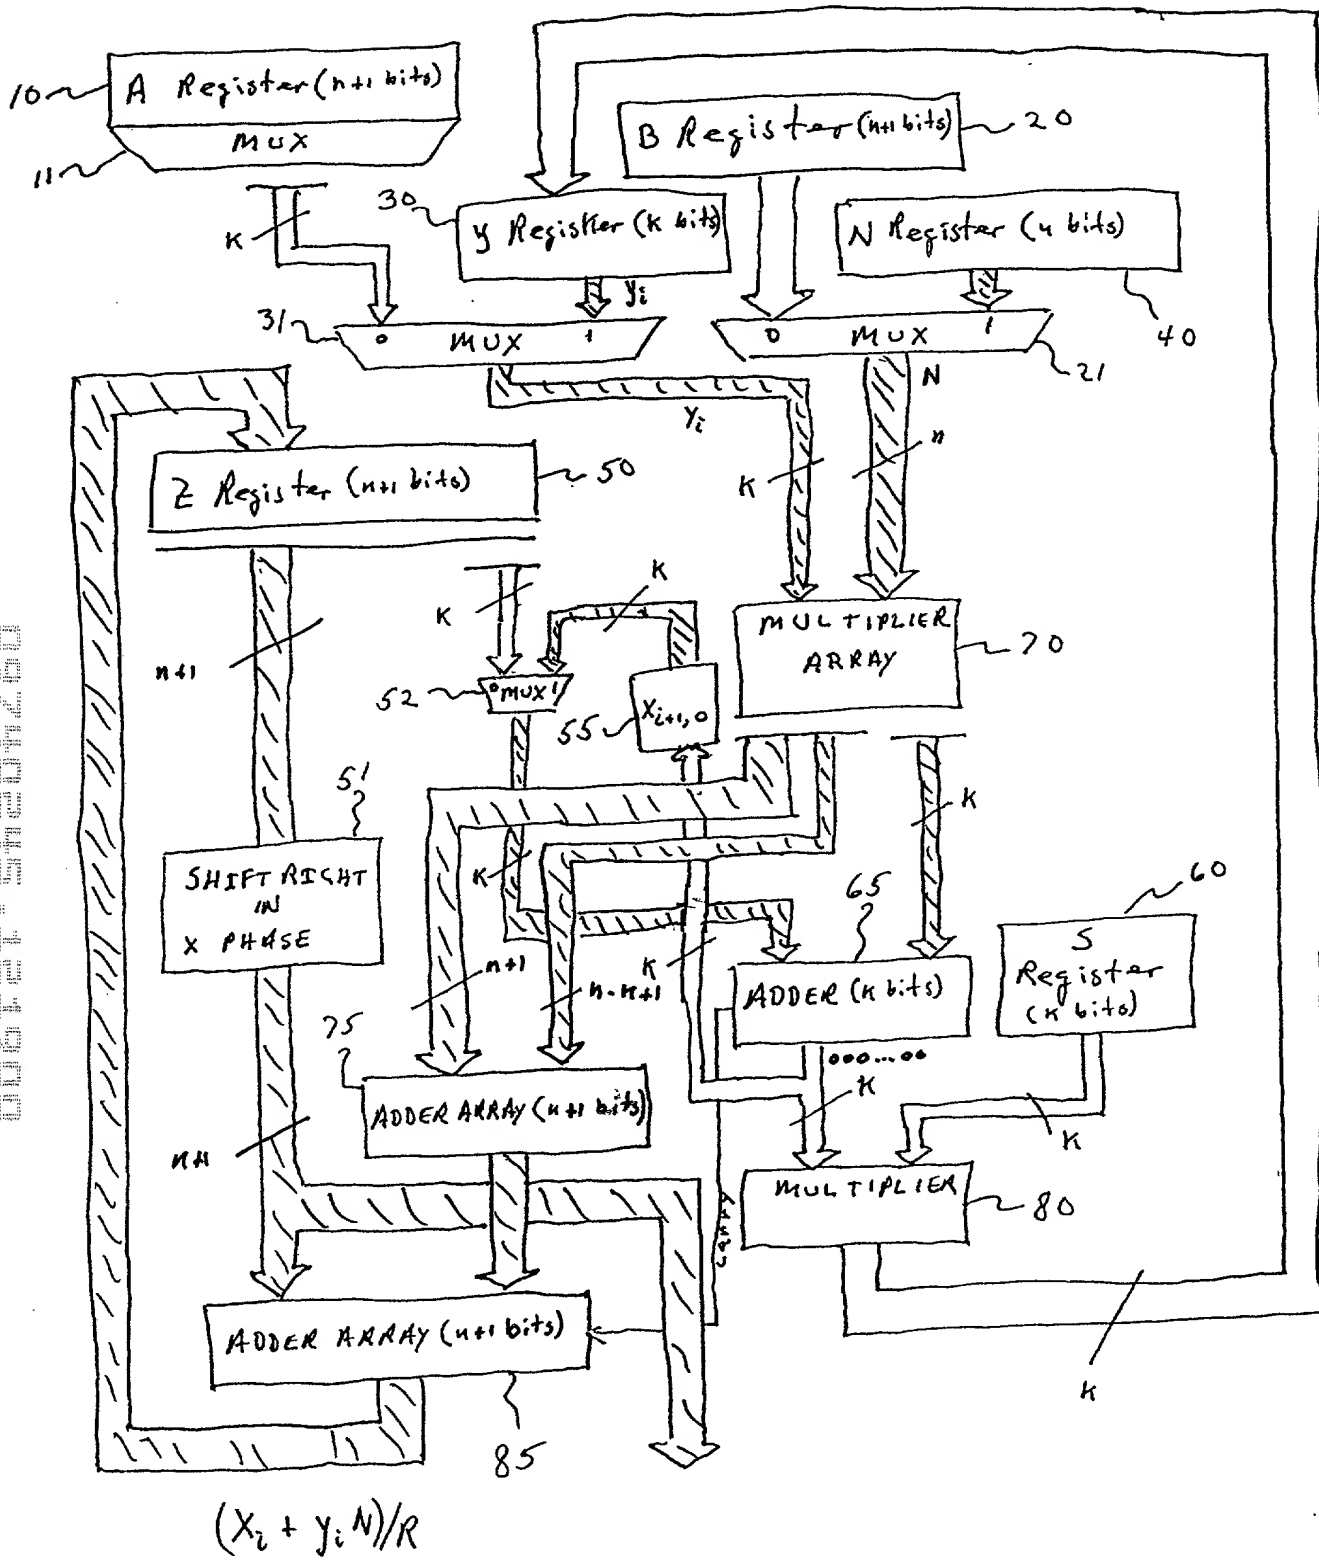 10
A Register (n+1 bits)
MUX
11
B Register (n+1 bits)
20
30
Y Register (k bits)
N Register (n bits)
40
K
yi
31
0 MUX 1
0 MUX 1
21
N
Yi
n
K
Z Register (n+1 bits)
50
K
K
n+1
MULTIPLIER
ARRAY
70
52
0 MUX 1
55
Xi+1,0
K
51
SHIFT RIGHT
IN
X PHASE
K
65
60
S
Register
(K bits)
n+1
n-K+1
K
ADDER (K bits)
75
000...00
K
K
ADDER ARRAY (n+1 bits)
n+1
MULTIPLIER
80
CARRY
K
ADDER ARRAY (n+1 bits)
85
(Xi + yi N)/R